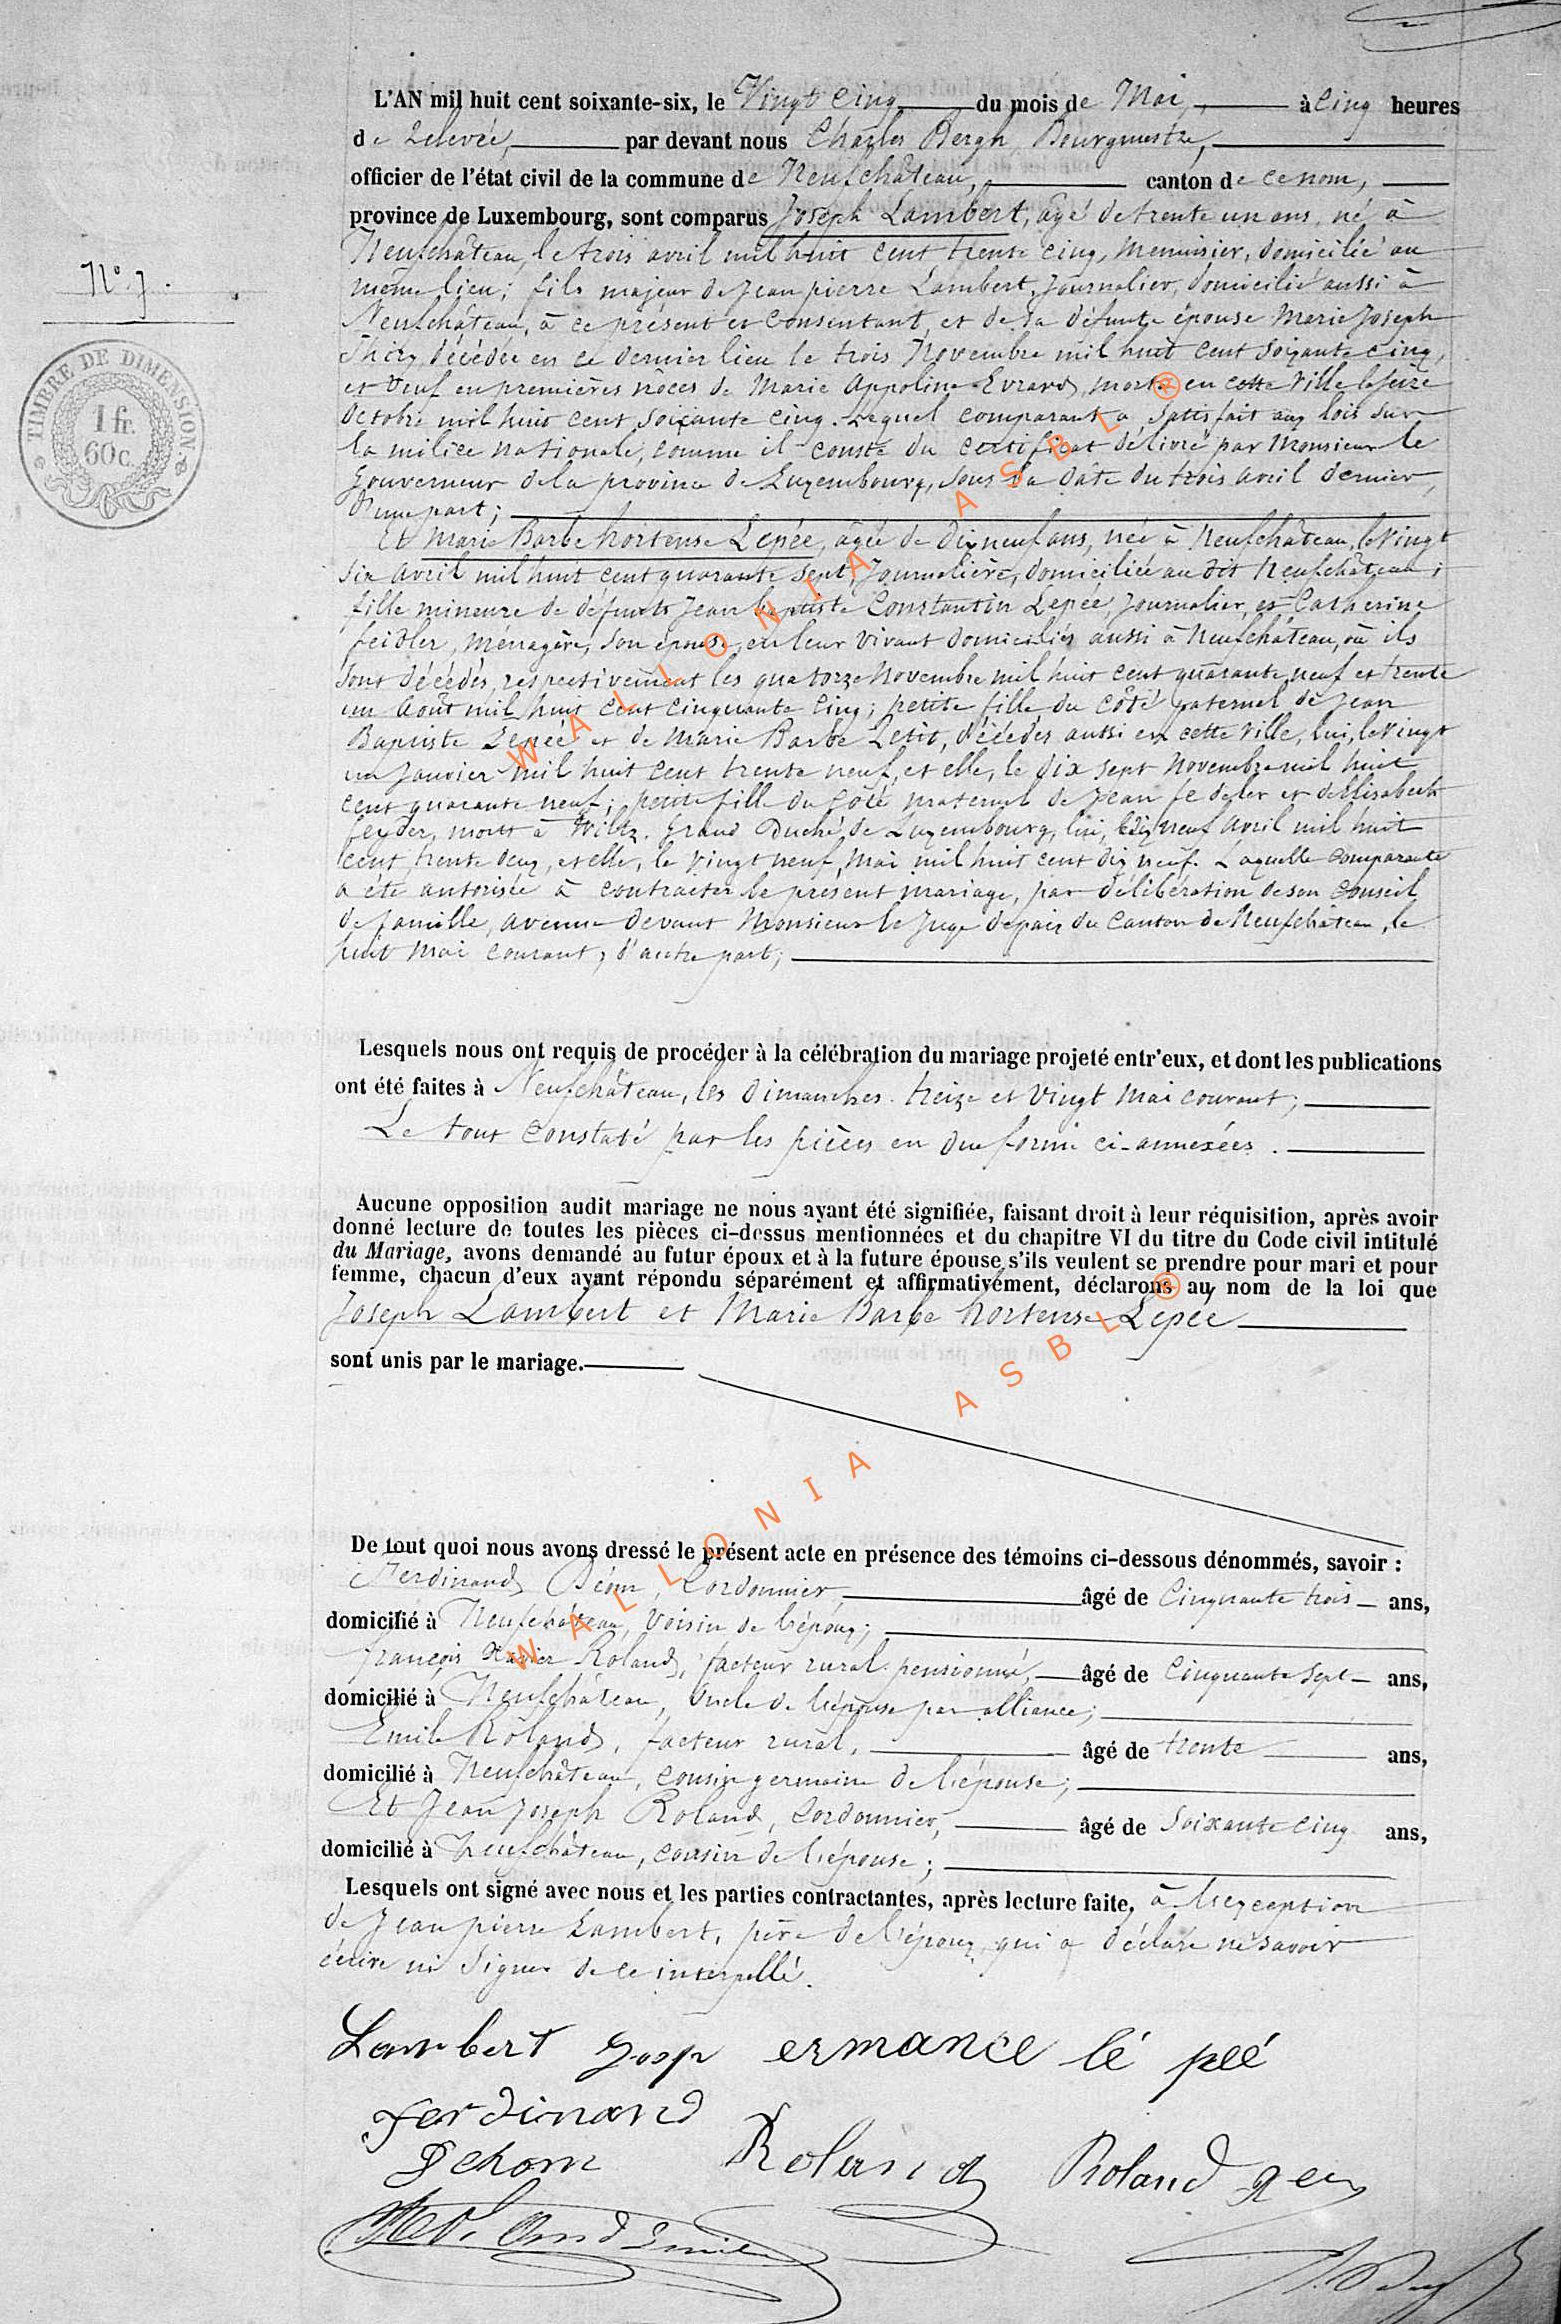 L'AN mil huit cent soixante-six, le Vingt Cinq du mois de Mai, à Cinq heures
de Relevée, par devant nous Charles Bergh, Bourgmestre,
officier de l'état civil de la commune de Neufchâteau, canton de ce nom,
province de Luxembourg, sont comparus Joseph Lambert, âgé de trente un ans, né à
Neufchâteau, le trois avril mil huit cent trente cinq, menuisier, domicilié au
N° 7.
même lieu; fils majeur de Jean pierre Lambert, Journalier, domicilié aussi à
Neufchâteau, à ce présent et Consentant, et de sa défunte épouse Marie Joseph
Thiry, décédée en ce dernier lieu le trois Novembre mil huit cent soixante cinq,
et veuf en premières nôces de Marie Appoline Evrard, morte en cette Ville le seize
TIMBRE DE DIMENSION.
1 fr.
60 c.
Octobre mil huit cent soixante cinq. Lequel comparant a satisfait aux lois sur
la milice nationale, comme il conste du certificat délivré par Monsieur le
Gouverneur de la province de Luxembourg, sous la date du trois avril dernier,
d'une part;
Et Marie Barbe hortense Lepée, âgée de dix neuf ans, née à Neufchâteau, le Vingt
six avril mil huit cent quarante sept, Journalière, domiciliée au dit Neufchâteau;
fille mineure de défunts Jean baptiste Constantin Lepée, Journalier, et Catherine
feidler, Ménagère, son épouse, en leur vivant domiciliés aussi à Neufchâteau, où ils
sont décédés, respectivement les quatorze Novembre mil huit cent quarante neuf et trente
un Août mil huit cent cinquante Cinq; petite fille du côté paternel de Jean
Baptiste Lepée et de Marie Barbe Petit, décédés aussi en cette Ville, lui, le Vingt
un Janvier mil huit cent trente neuf, et elle, le dix sept Novembre mil huit
cent quarante neuf; petite fille du Côté maternel de Jean fedeler et d'Elisabeth
feyder, morts à Wiltz. Grand Duché de Luxembourg, lui, le dix neuf Avril mil huit
Cent trente deux, et elle, le vingt neuf Mai mil huit cent dix neuf. Laquelle comparante
a été autorisée à contracter le présent mariage, par délibération de son Conseil
de famille, avenue devant Monsieur le Juge de paix du Canton de Neufchâteau, le
huit Mai courant, d'autre part;
Lesquels nous ont requis de procéder à la célébration du mariage projeté entr'eux, et dont les publications
ont été faites à Neufchâteau, les dimanches treize et vingt Mai courant;
Le tout constaté par les pièces en due forme ci-annexées.
Aucune opposition audit mariage ne nous ayant été signifiée, faisant droit à leur réquisition, après avoir
donné lecture de toutes les pièces ci-dessus mentionnées et du chapitre VI du titre du Code civil intitulé
du Mariage, avons demandé au futur époux et à la future épouse s'ils veulent se prendre pour mari et pour
femme, chacun d'eux ayant répondu séparément et affirmativement, déclarons au nom de la loi que
Joseph Lambert et Marie Barbe hortense Lepée
sont unis par le mariage.
De tout quoi nous avons dressé le présent acte en présence des témoins ci-dessous dénommés, savoir :
Ferdinand Déom, Cordonnier, âgé de Cinquante trois ans,
domicilié à Neufchâteau, Voisin de l'époux;
François Xavier Roland, facteur rural pensionné, âgé de Cinquante Sept ans,
domicilié à Neufchâteau, Oncle de l'épouse par alliance;
Emile Roland, facteur rural, âgé de trente ans,
domicilié à Neufchâteau, cousin germain de l'épouse;
Et Jean Joseph Roland, Cordonnier, âgé de Soixante cinq ans,
domicilié à Neufchâteau, cousin de l'épouse;
Lesquels ont signé avec nous et les parties contractantes, après lecture faite, à l'exception
de Jean pierre Lambert, père de l'époux, qui a déclaré ne savoir
écrire ni Signer de ce interpellé.
Lambert Josp ermance lé peé
Ferdinand
Dehom Roland Roland
WALLONIA ASBL ®
WALLONIA ASBL ®